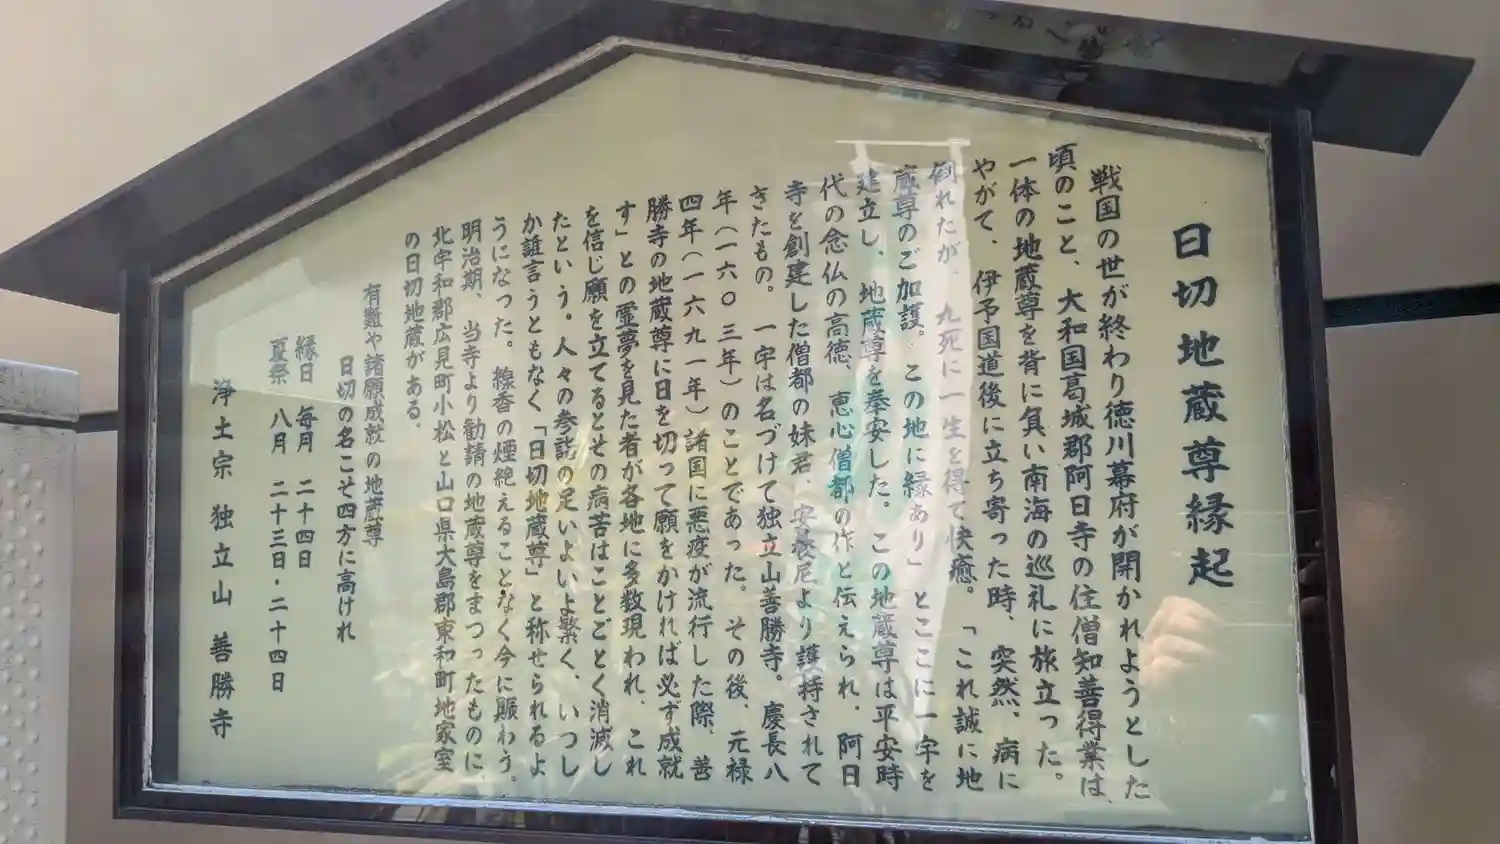 日切地蔵尊縁起
戦国の世が終わり徳川幕府が開かれようとした
頃のこと、大和国葛城郡阿日寺の住僧知善得業は、
一体の地蔵尊を背に負い南海の巡礼に旅立った。
やがて、伊予国道後に立ち寄った時、突然、病に
倒れたが、九死に一生を得て快癒。「これ誠に地
蔵尊のご加護。この地に縁あり」とここに一宇を
建立し、地蔵尊を奉安した。この地蔵尊は平安時
代の念仏の高徳、恵心僧都の作と伝えられ、阿日
寺を創建した僧都の妹君、安養尼より護持されて
きたもの。一宇は名づけて独立山善勝寺。慶長八
年(一六〇三年)のことであった。その後、元禄
四年(一六九一年)諸国に悪疫が流行した際、善
勝寺の地蔵尊に日を切って願をかければ必ず成就
す」との霊夢を見た者が各地に多数現われ、これ
を信じ願を立てるとその病苦はことごとく消滅し
たという。人々の参詣の足いよいよ繁く、いつし
か誰言うともなく「日切地蔵尊」と称せられるよ
うになった。線香の煙絶えることなく今に賑わう。
明治期、当寺より勧請の地蔵尊をまつったものに、
北宇和郡広見町小松と山口県大島郡東和町地家室
の日切地蔵がある。
有難や諸願成就の地蔵尊
日切の名こそ四方に高けれ
縁日 毎月 二十四日
夏祭 八月 二十三日・二十四日
浄土宗 独立山 善勝寺